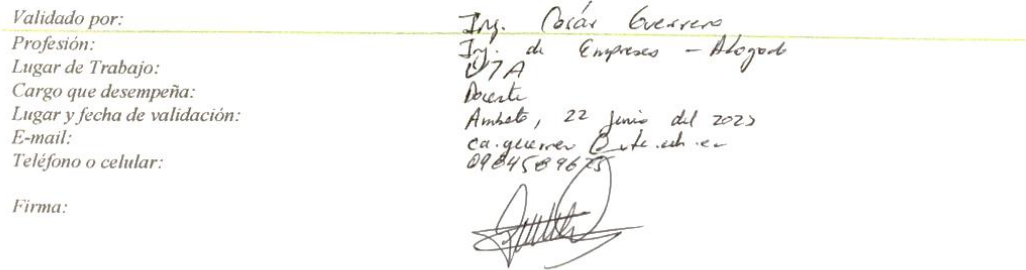 Validado por: Ing. Guerrero
Profesión: Ing. de Empresas – Abogado
Lugar de Trabajo: UTA
Cargo que desempeña: Docente
Lugar y fecha de validación: Ambato, 22 junio del
E-mail:
Teléfono o celular:
Firma: